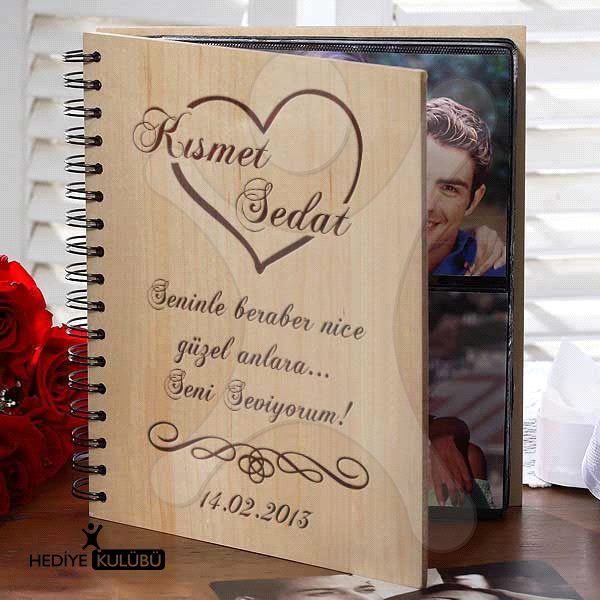 Kısmet
Sedat
Seninle beraber nice
güzel anlara...
Seni Seviyorum!
14.02.2013
HEDİYE KULÜBÜ